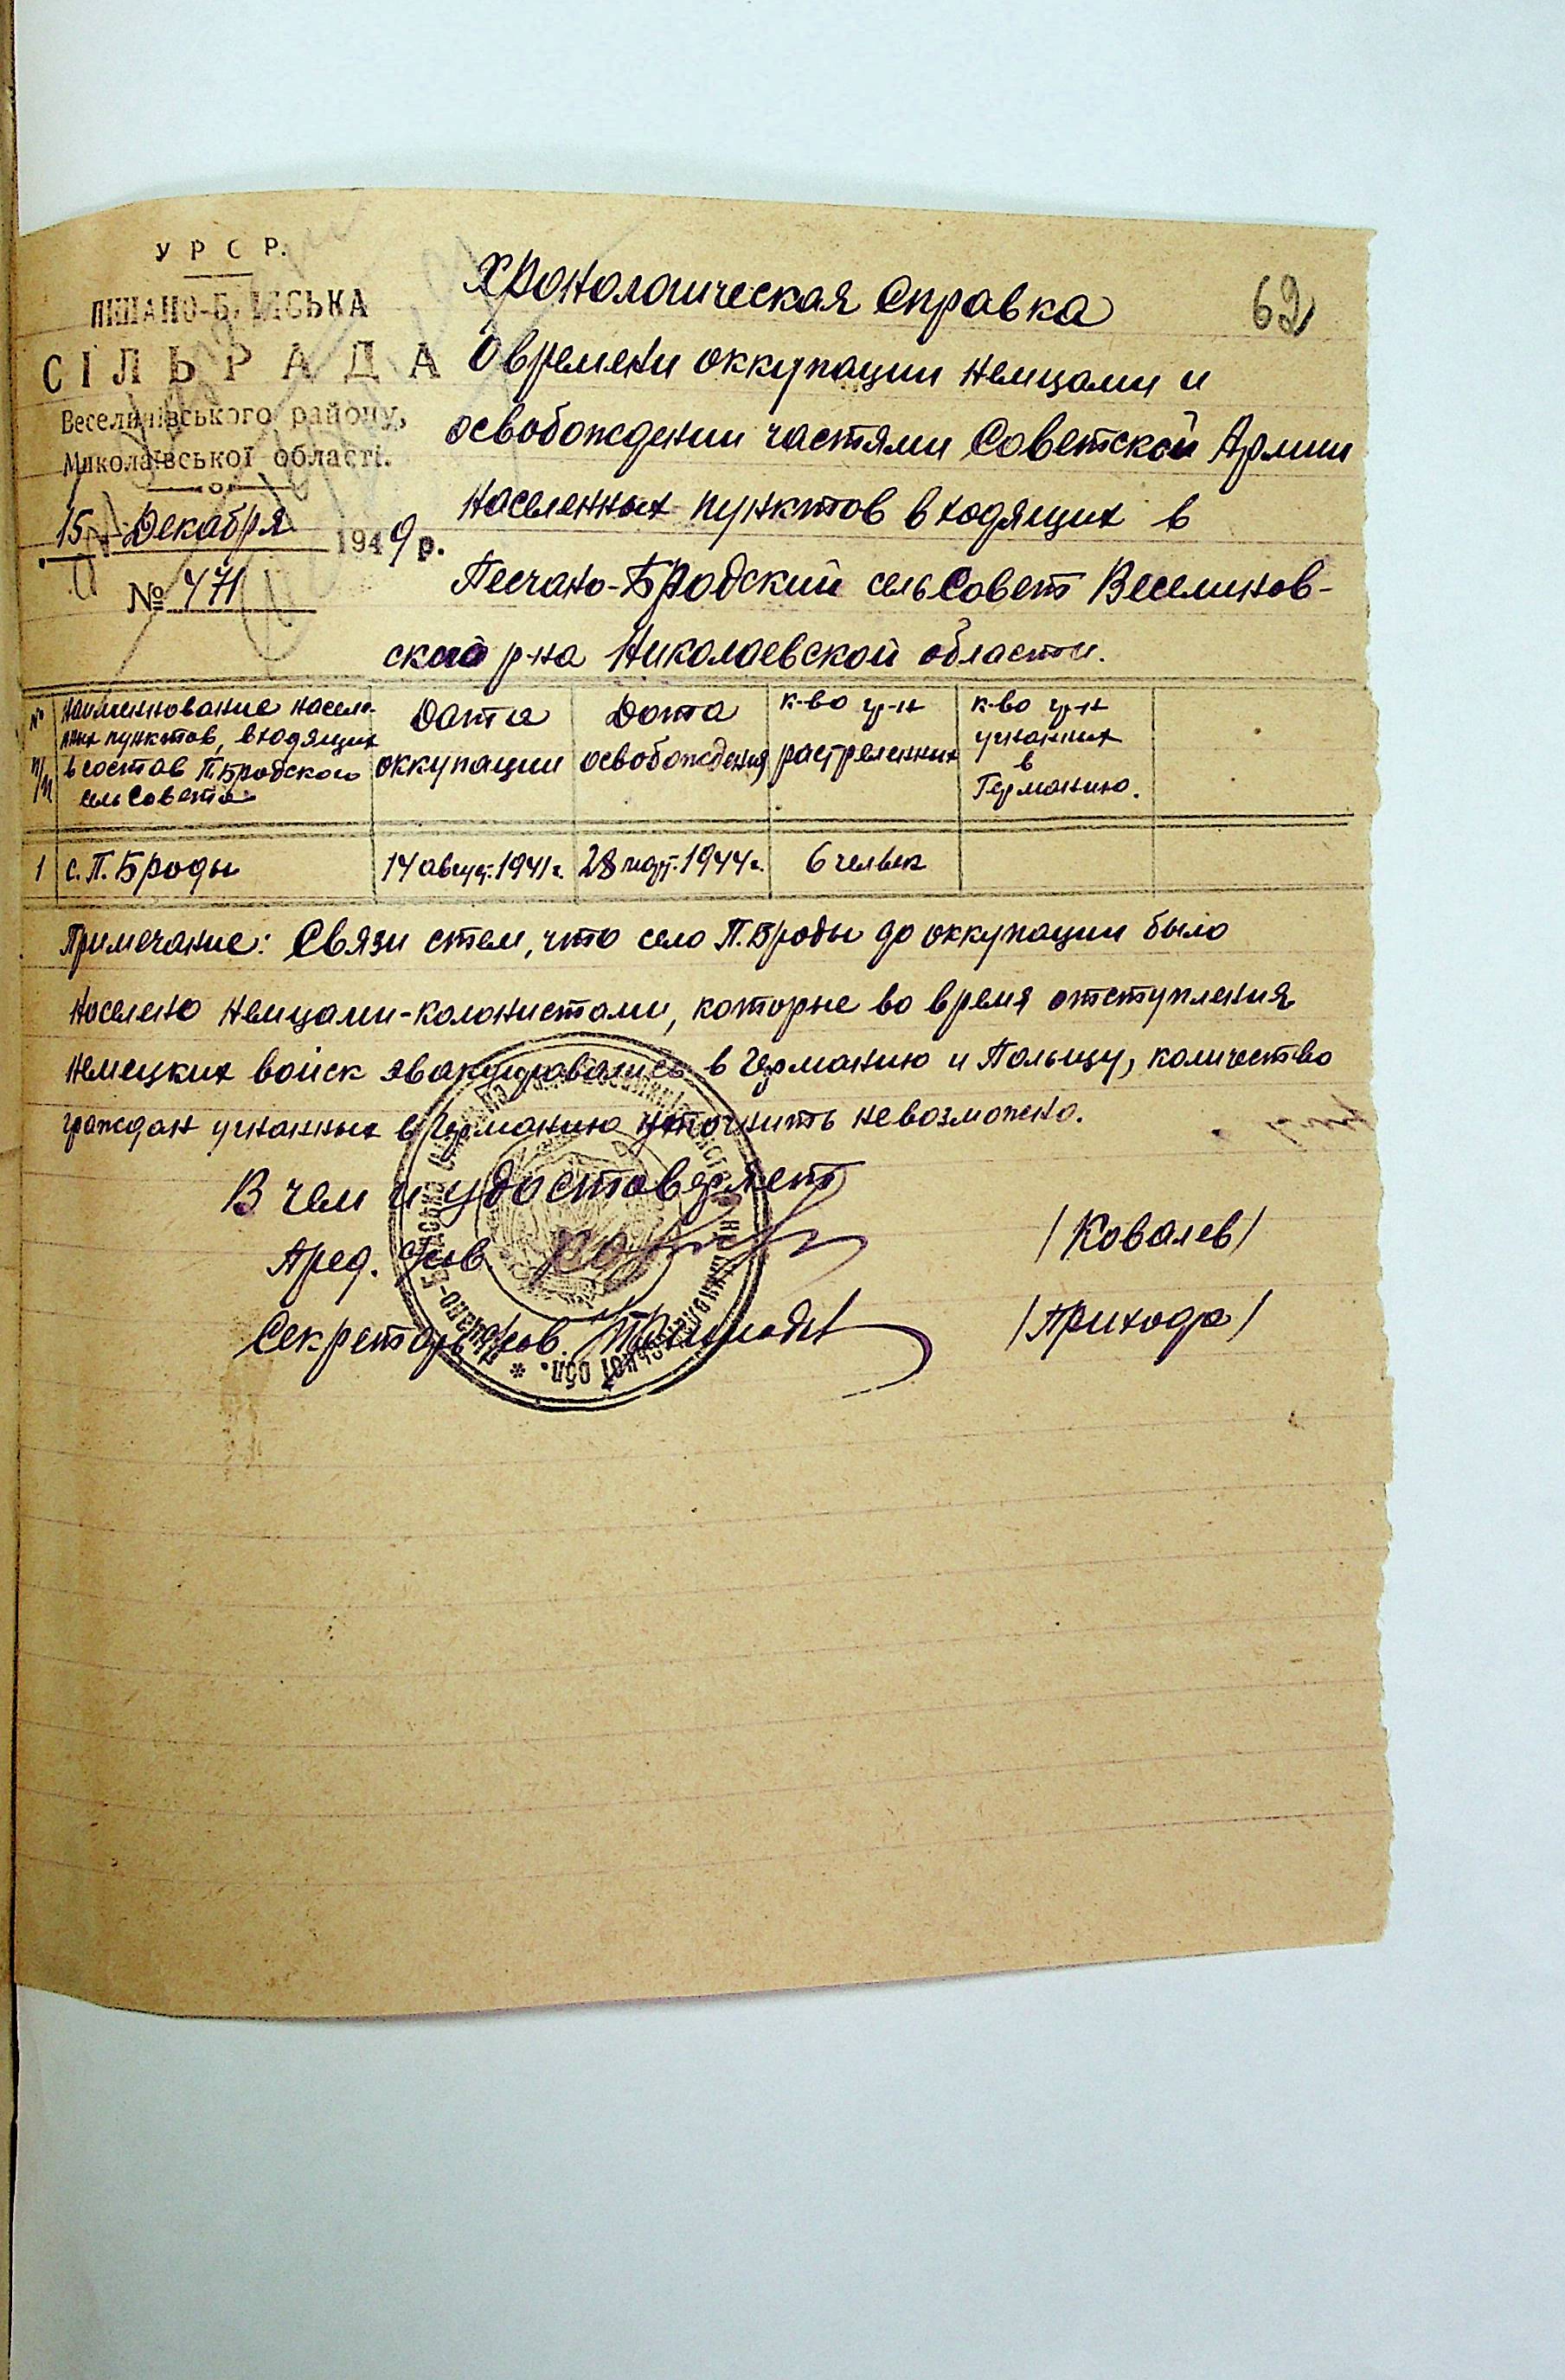 У Р С Р.
ПІЩАНО-БРІДСЬКА
СІЛЬРАДА
Веселинівського району,
Миколаївської області.
15 Декабря 1949 р.
№ 471
62
Хронологическая справка
О времени оккупации немцами и
освобождении частями Советской Армии
населенных пунктов входящих в
Песчано-Бродский сельСовет Веселинов-
ского р-на Николаевской области.
№ п/п | Наименнование населе-
нных пунктов, входящих
в состав П.Бродского
сельСовета | Дата
оккупации | Дата
освобождения | к-во гр-н
растреленных | к-во гр-н
угнанных
в
Германию.
1 | с. П. Броды | 14 август. 1941 г. | 28 март. 1944 г. | 6 человек
Примечание: Связи стем, что село П.Броды до оккупации было
населено немцами-колонистами, которые во время отступления
немецких войск эвакуировались в Германию и Польщу, количество
граждан угнанных в Германию уточнить невозможно.
В чем и удостоверяет
Пред. с/сов. /Ковалев/
Секретарь с/сов. /Прихода/